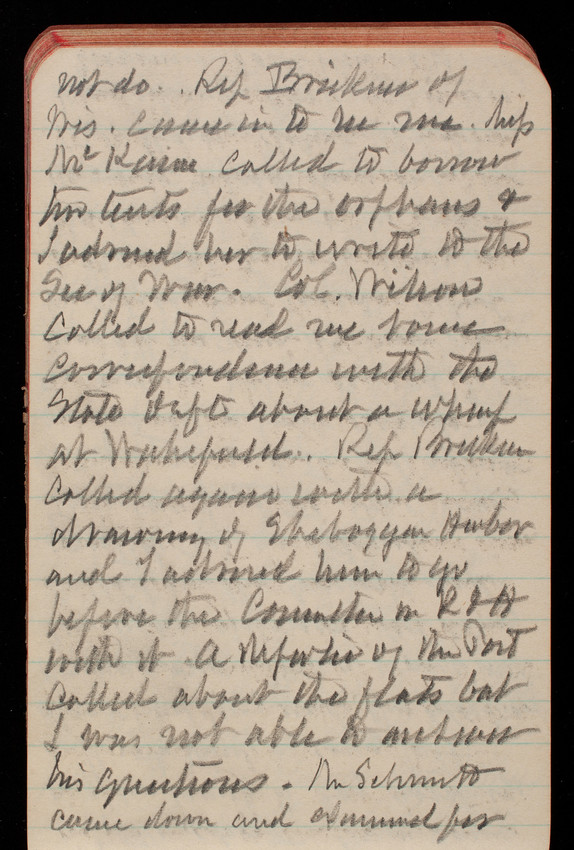 not do. Rep Brickner of
Wis. came in to see me. Miss
McKaine called to borrow
two tents for the orphans &
I advised her to write to the
Sec of War. Col. Wilson
called to read me some
correspondence with the
State Dept about a wharf
at Wakefield. Rep Brickner
called again with a
drawing of Sheboygan Harbor
and I advised him to go
before the Committee on R & H
with it A reporter of the Post
called about the flats but
I was not able to answer
his questions. Mr Schmidt
came down and examined for